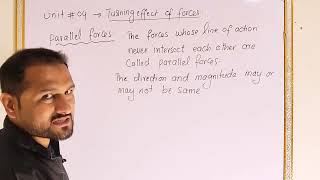 Unit # 04 → Turning effect of forces
Parallel forces The forces whose line of action
never intersect each other are
called parallel forces.
The direction and magnitude may or
may not be same